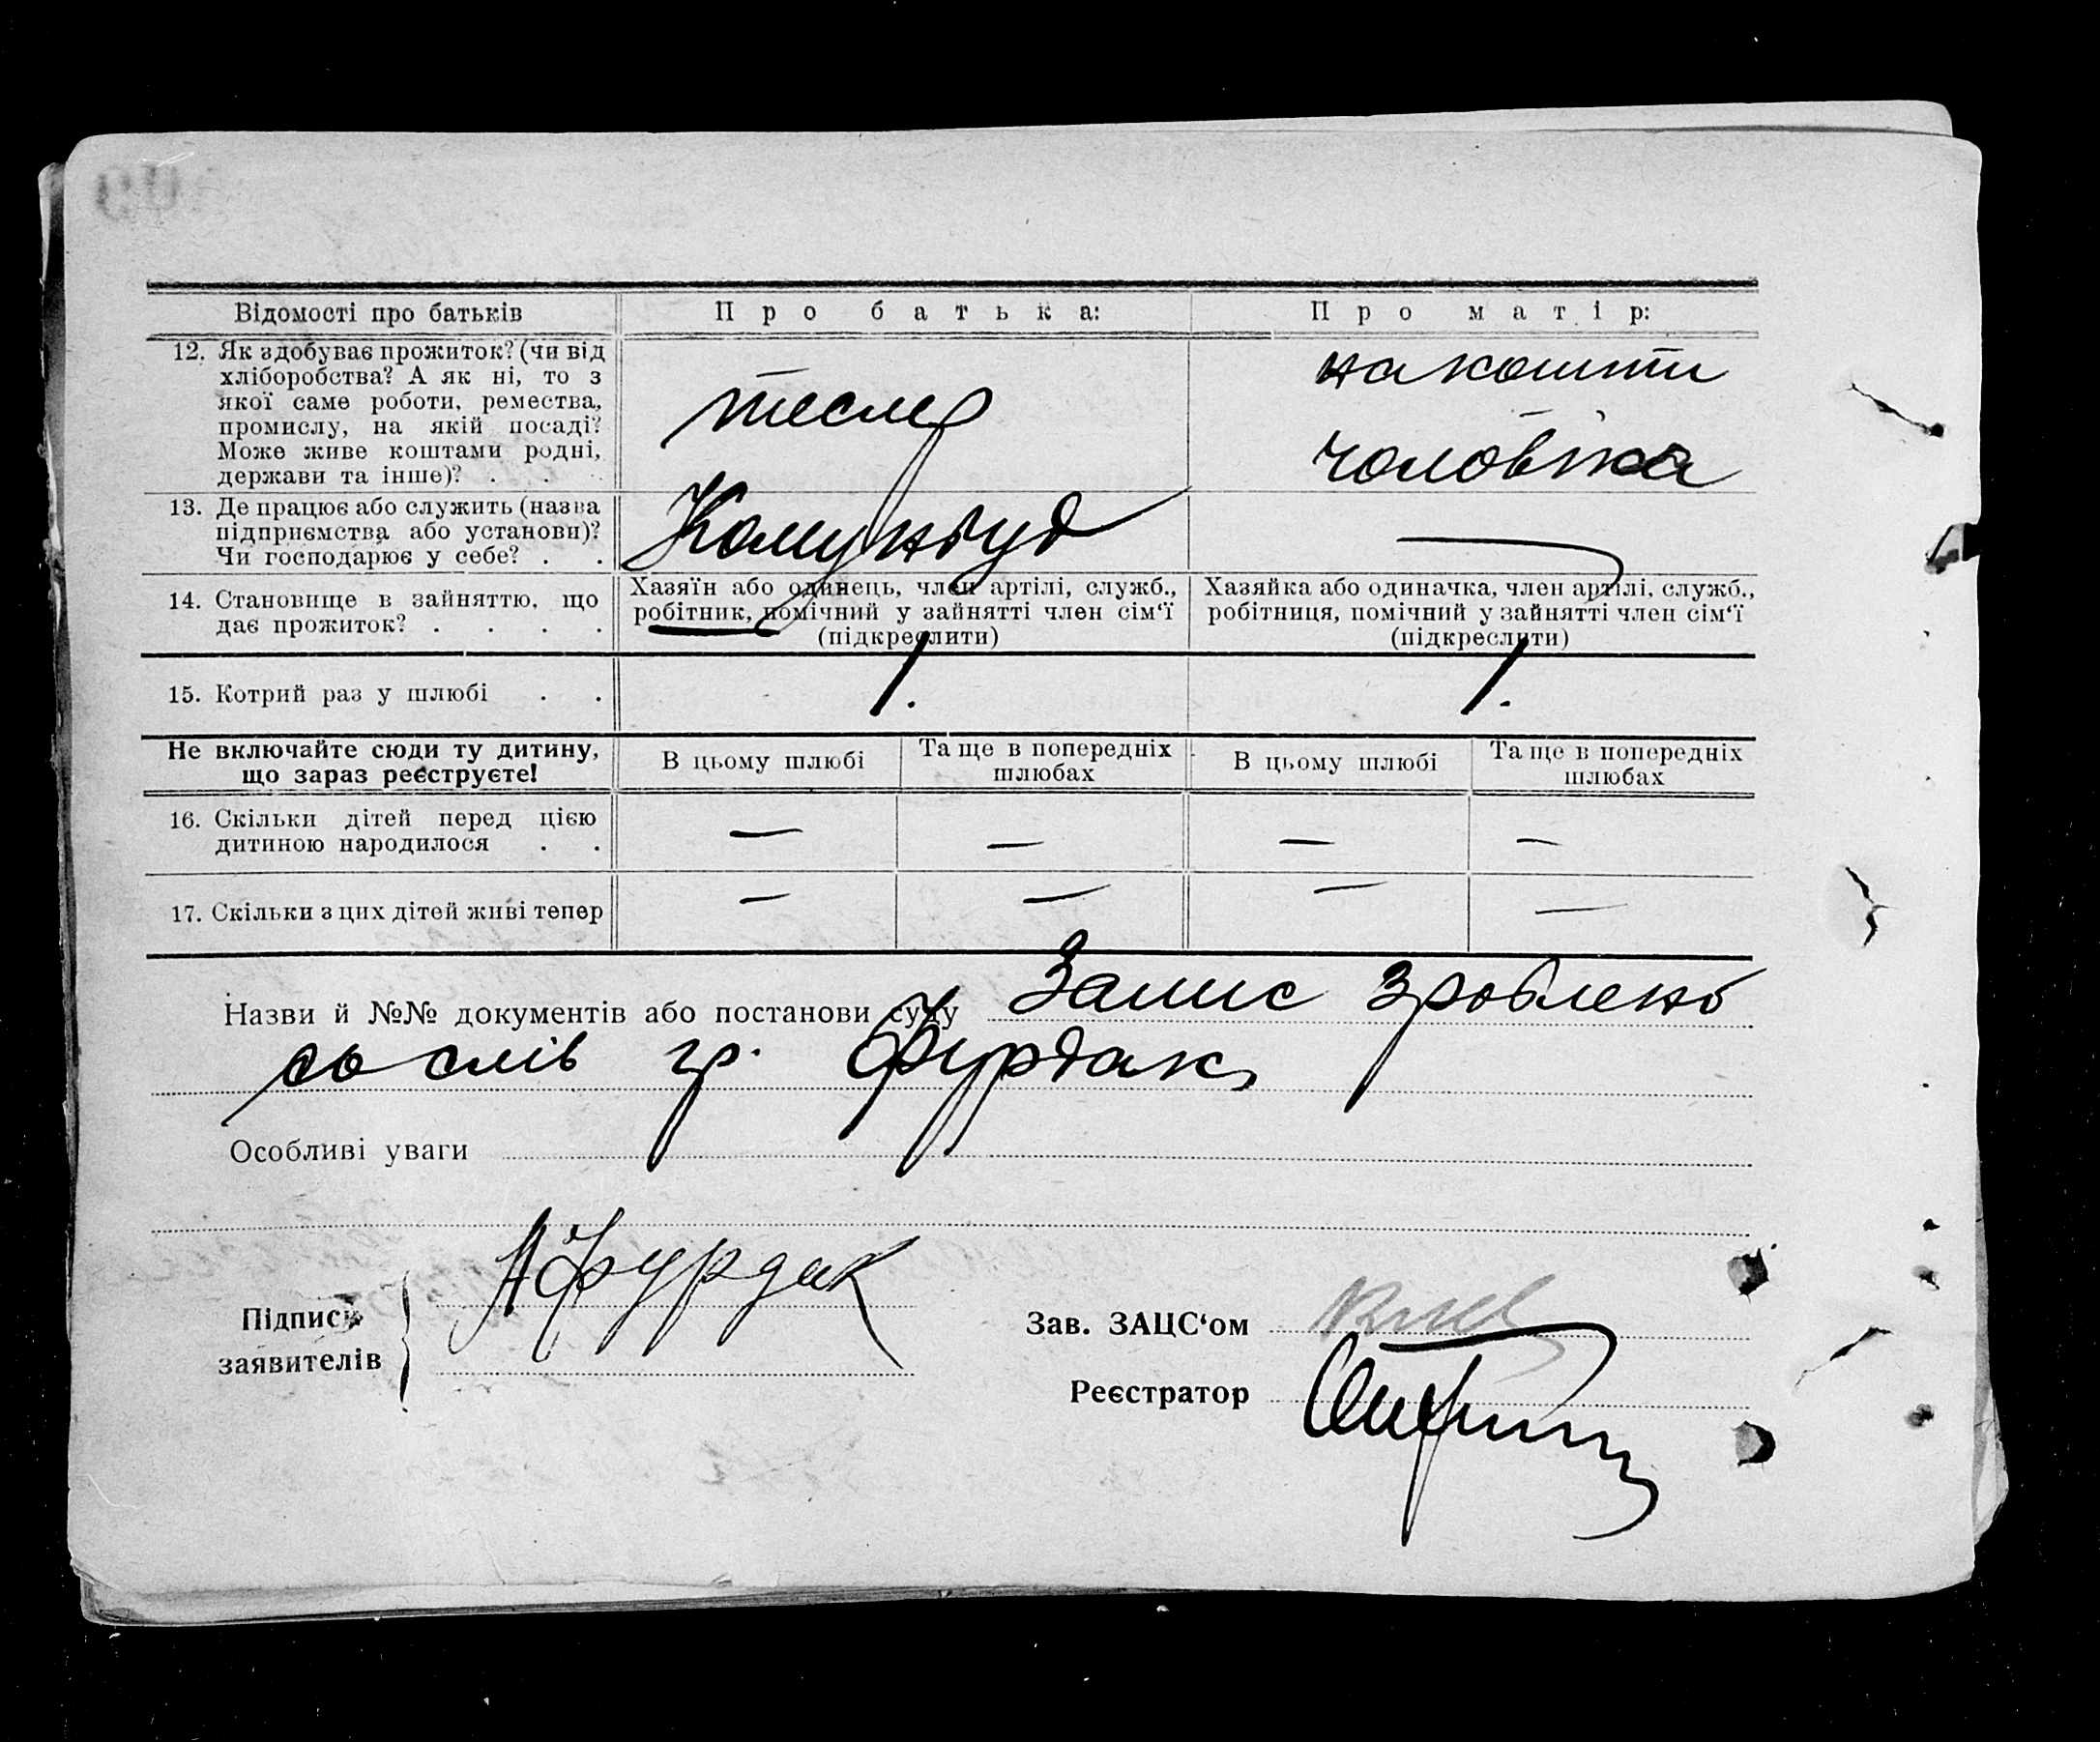 Відомості про батьків
Про батька:
Про матір:
12. Як здобуває прожиток? (чи від
хліборобства? А як ні, то з
якої саме роботи, ремества,
промислу, на якій посаді?
Може живе коштами родні,
держави та інше)? . .
тесля
на кошти
чоловіка
13. Де працює або служить (назва
підприємства або установи)?
Чи господарює у себе? . .
Комунбуд
—
14. Становище в зайняттю, що
дає прожиток? . . . .
Хазяїн або одинець, член артілі, служб.,
робітник, помічний у зайнятті член сім‘ї
(підкреслити)
Хазяйка або одиначка, член артілі, служб.,
робітниця, помічний у зайнятті член сім‘ї
(підкреслити)
15. Котрий раз у шлюбі . .
1.
1.
Не включайте сюди ту дитину,
що зараз реєструєте!
В цьому шлюбі
Та ще в попередніх
шлюбах
В цьому шлюбі
Та ще в попередніх
шлюбах
16. Скільки дітей перед цією
дитиною народилося . .
— — — —
17. Скільки з цих дітей живі тепер
— — — —
Назви й №№ документів або постанови суду Запис зроблено
со слів гр. Фурдак
Особливі уваги
Підписи
заявителів
АФурдак
Зав. ЗАЦС‘ом
Реєстратор